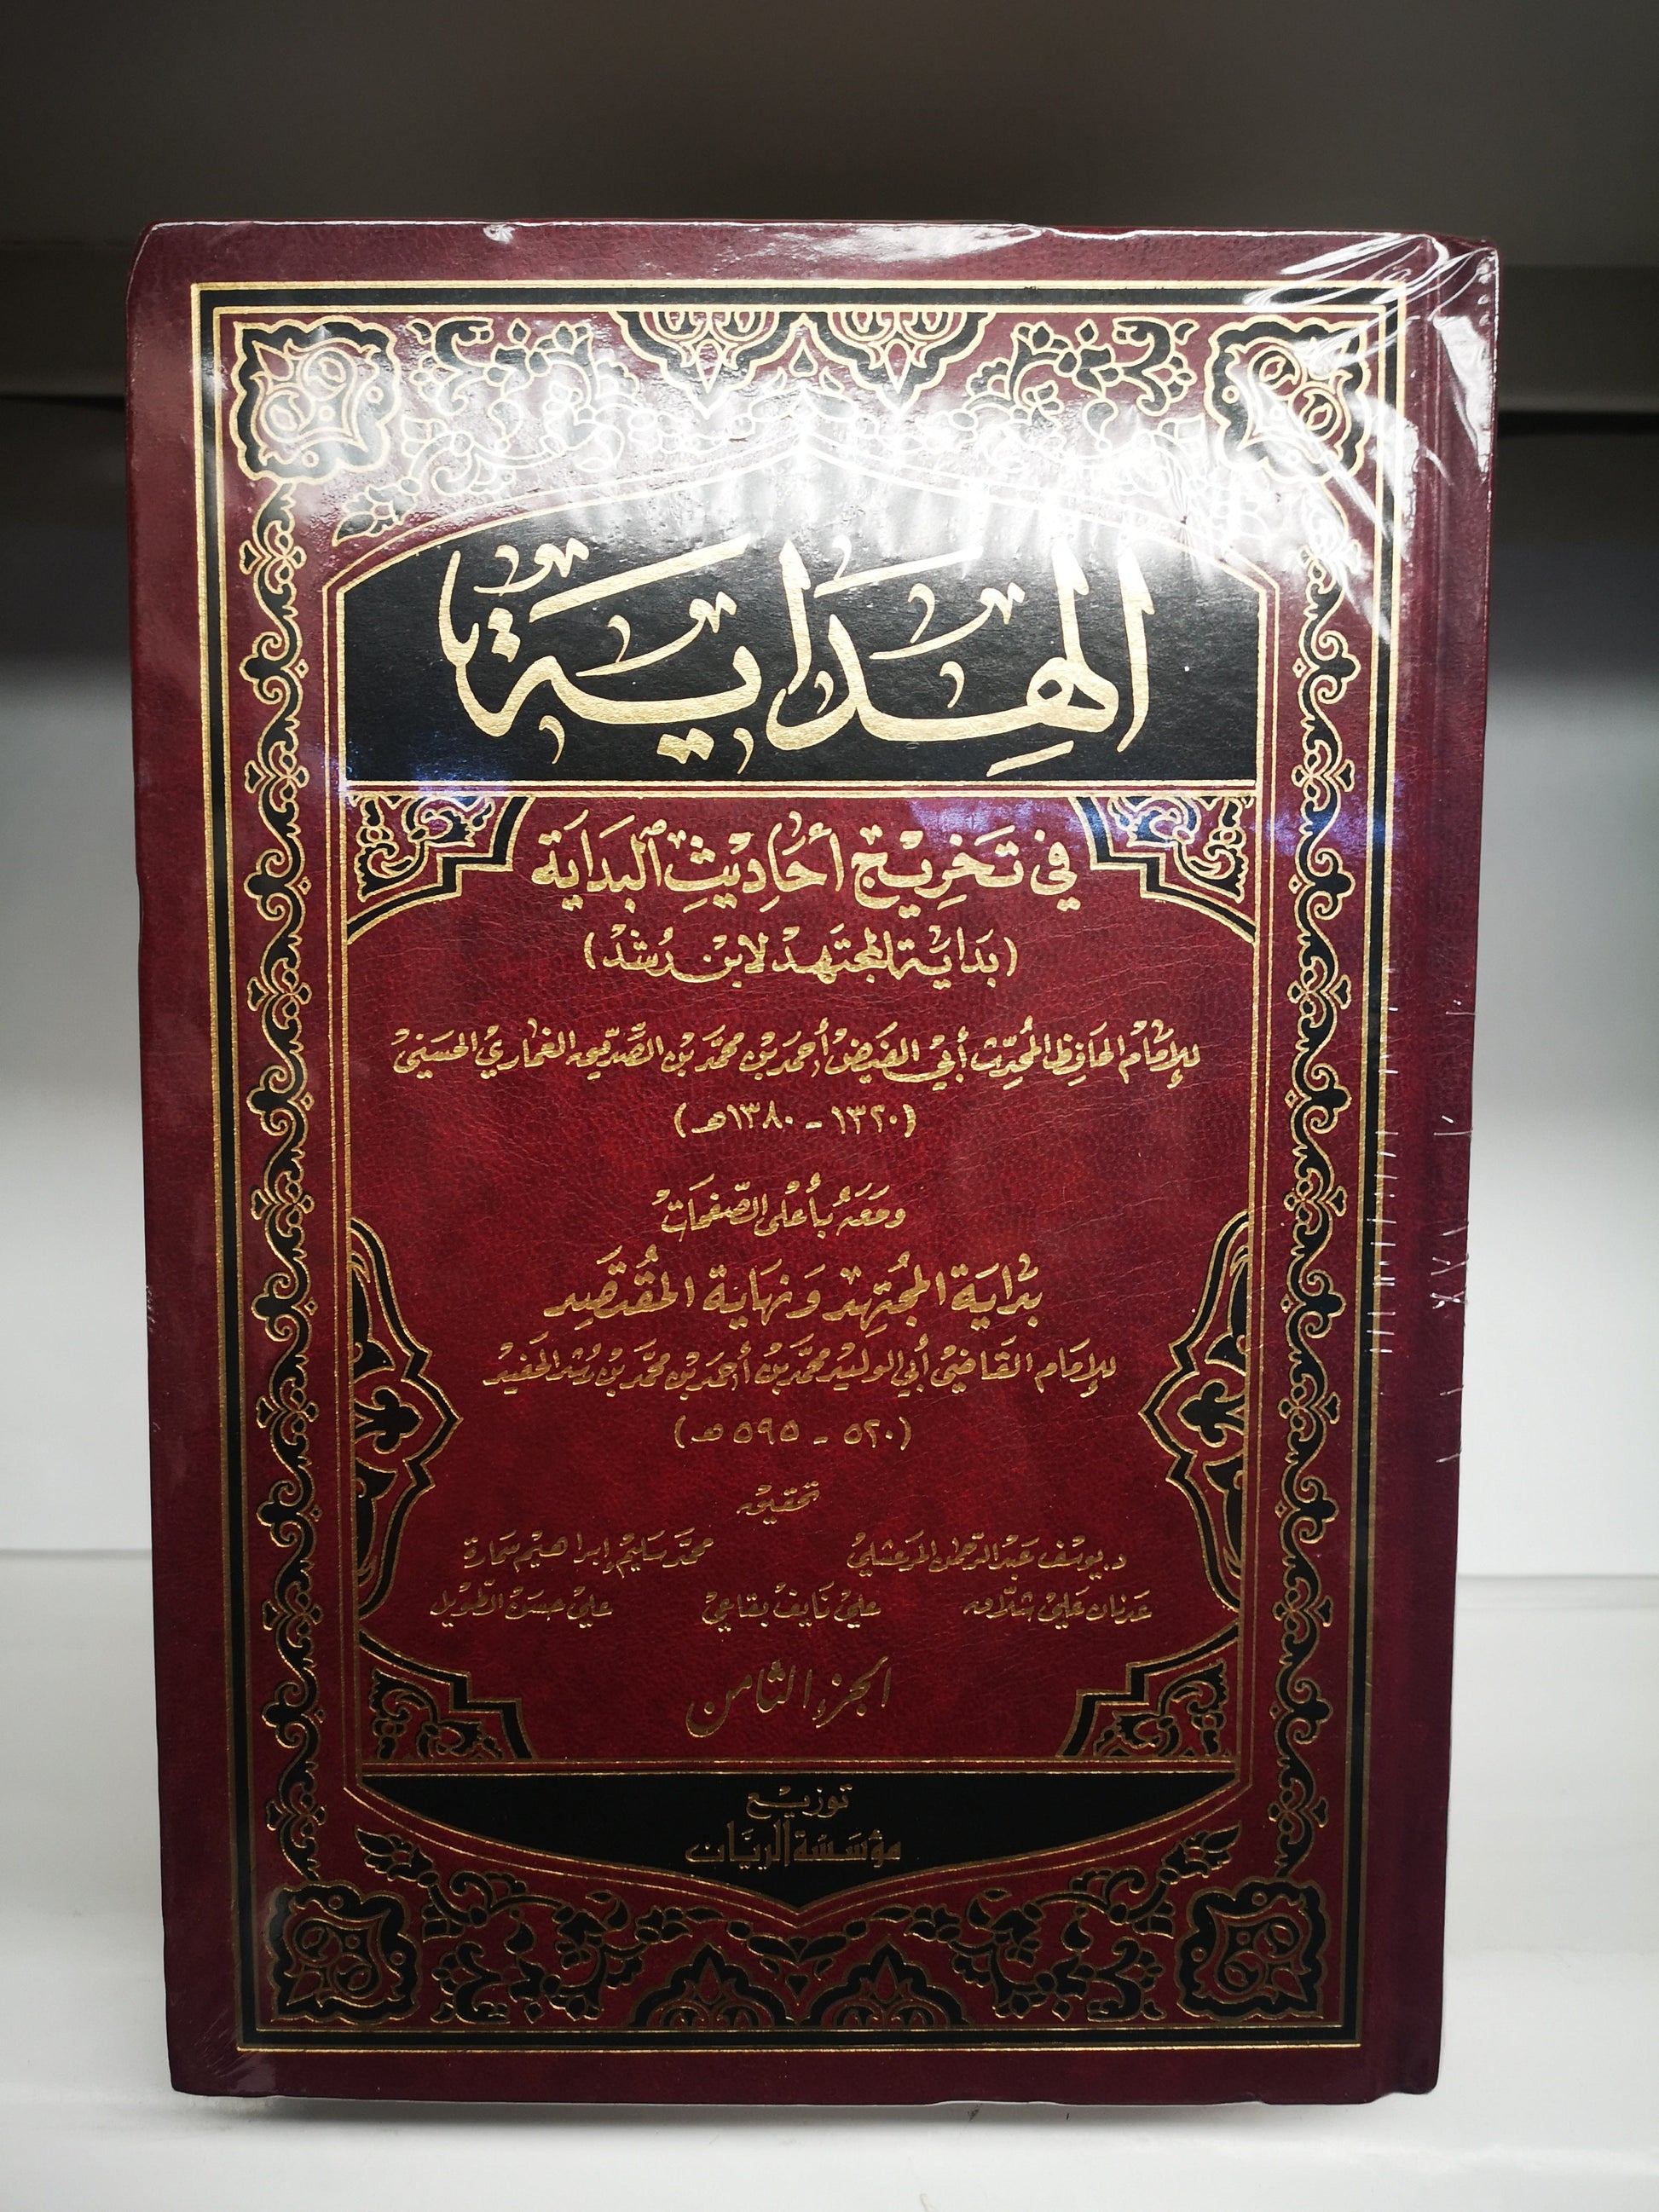 الهداية
في تخريج أحاديث البداية
(بداية المجتهد لابن رشد)
للإمام الحافظ المحدث أبي الفيض أحمد بن محمد بن الصديق الغماري الحسني
(١٣٢٠ - ١٣٨٠هـ)
ومعه بأعلى الصفحات
بداية المجتهد ونهاية المقتصد
للإمام القاضي أبي الوليد محمد بن أحمد بن محمد بن رشد الحفيد
(٥٢٠ - ٥٩٥هـ)
تحقيق
د. يوسف عبد الرحمن المرعشلي محمد سليم إبراهيم سمارة
عدنان علي شلاق علي نايف بقاعي علي حسن الطويل
الجزء الثامن
توزيع
مؤسسة الريان